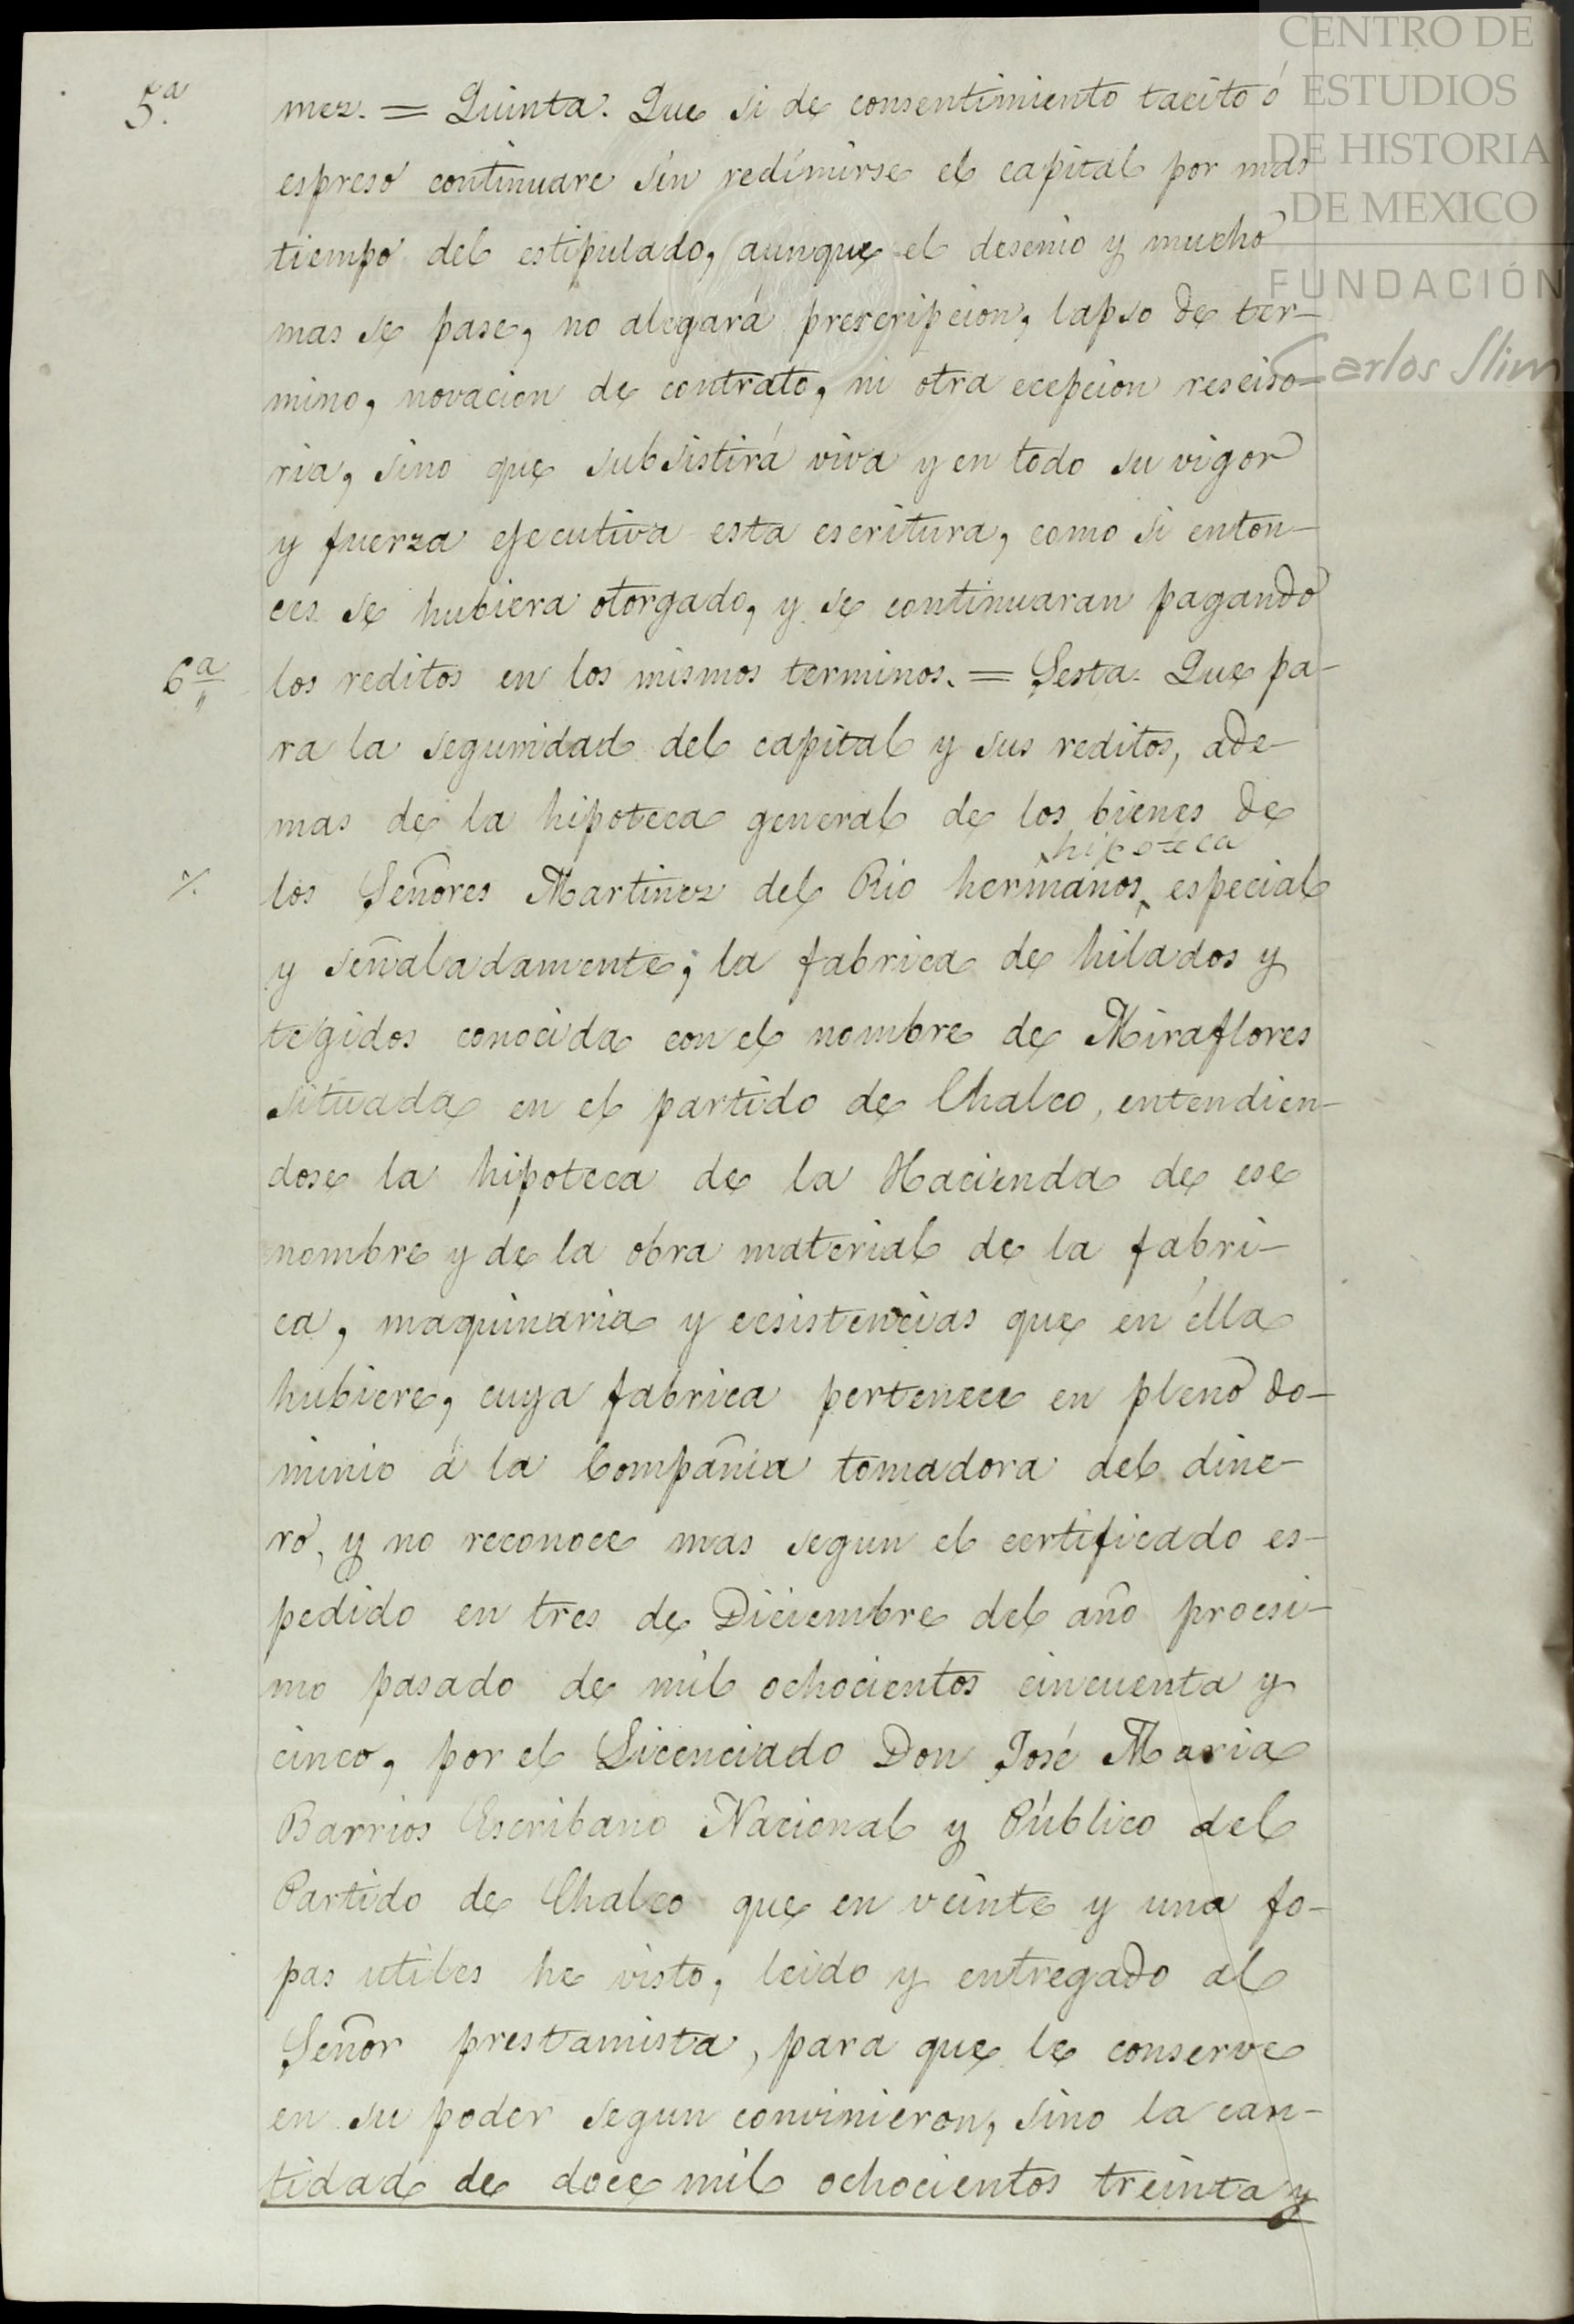 CENTRO DE
ESTUDIOS
DE HISTORIA
DE MEXICO
FUNDACIÓN
Carlos Slim
5.a
mez. = Quinta. Que si de consentimiento tacito ó
espreso continuare sin redimirse el capital por mas
tiempo del estipulado, aunque el desenio y mucho
mas se pase, no alegará prescripcion, lapso de ter-
mino, novacion de contrato, ni otra ecepcion resciso-
ria, sino que subsistirá viva y en todo su vigor
y fuerza ejecutiva esta escritura, como si enton-
ces se hubiera otorgado, y se continuaran pagando
6a
los reditos en los mismos terminos. = Sesta. Que pa-
ra la seguridad del capital y sus reditos, ade-
mas de la hipoteca general de los bienes de
hipoteca
los Señores Martinez del Rio hermanos, especial
y señaladamente; la fabrica de hilados y
tegidos conocida con el nombre de Miraflores
situada en el partido de Chalco, entendien-
dose la hipoteca de la Hacienda de ese
nombre y de la obra material de la fabri-
ca, maquinaria y ecsistencias que en élla
hubiere, cuya fabrica pertenece en pleno do-
minio á la Compañia tomadora del dine-
ro, y no reconoce mas segun el certificado es-
pedido en tres de Diciembre del año procsi-
mo pasado de mil ochocientos cincuenta y
cinco, por el Licenciado Don José Maria
Barrios Escribano Nacional y Público del
Partido de Chalco que en veinte y una fo-
pas utiles he visto, leido y entregado al
Señor prestamista, para que le conserve
en su poder segun convinieron, sino la can-
tidad de doce mil ochocientos treinta y